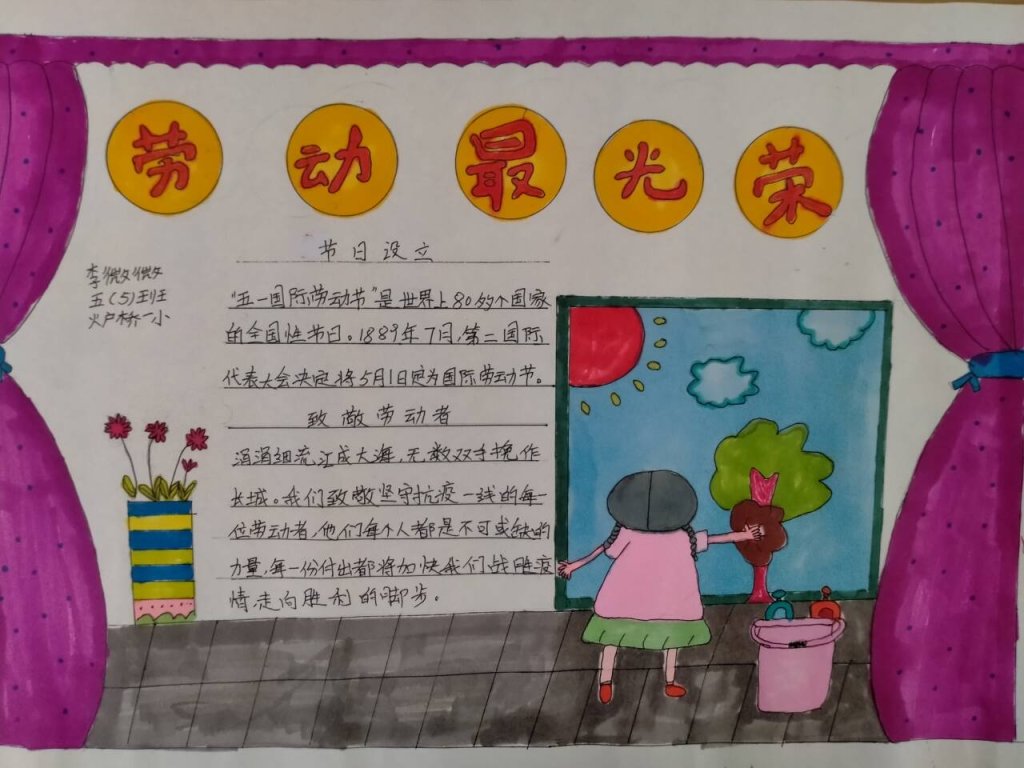 劳动最光荣
节日设立
李微微
五(5)班
炉桥一小
"五一国际劳动节"是世界上80多个国家
的全国性节日。1889年7月,第二国际
代表大会决定将5月1日定为国际劳动节。
致敬劳动者
涓涓细流,江成大海,无数双手挽作
长城。我们致敬坚守抗疫一线的每一
位劳动者,他们每个人都是不可或缺的
力量,每一份付出都将加快我们战胜疫
情走向胜利的脚步。